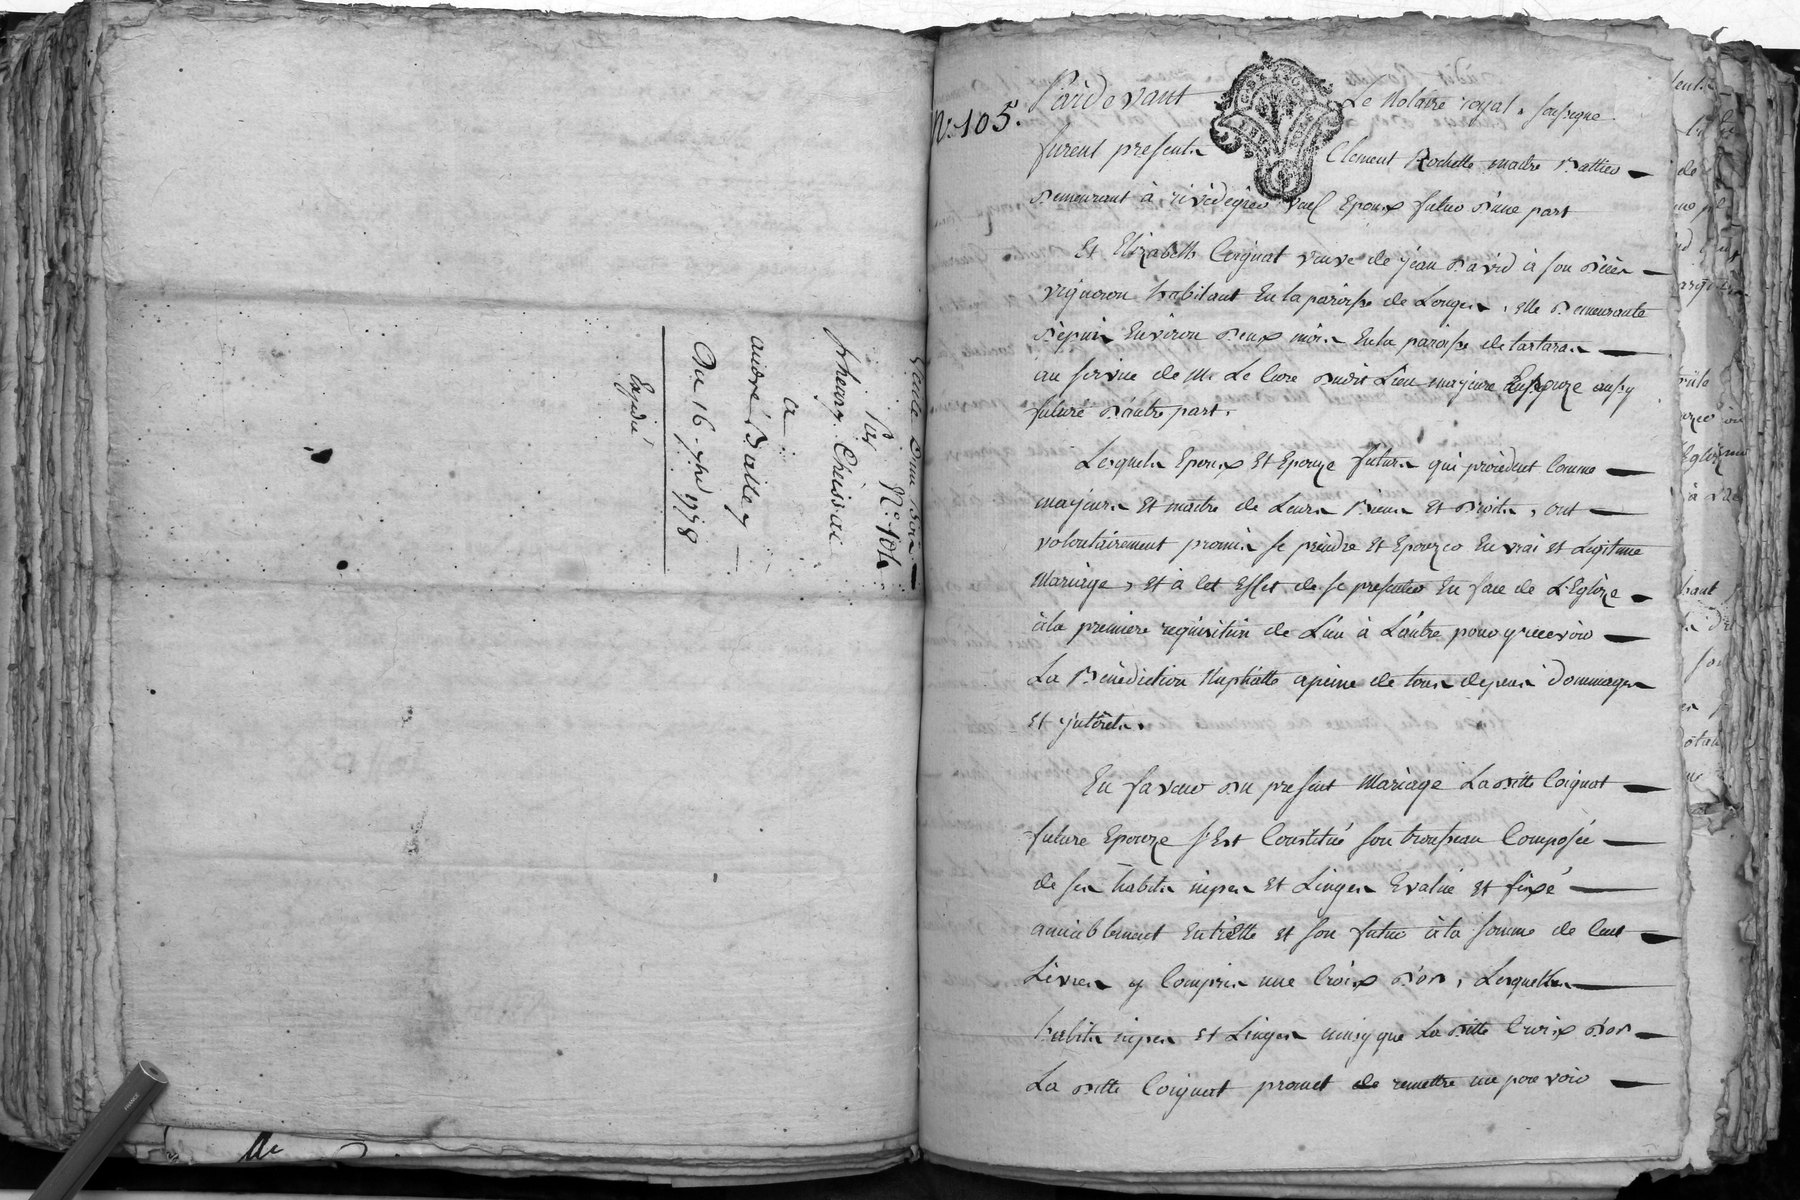 Vente d'un bois
N.° 104
Par
sr henry Chuissac
a
andré Balley
Du 16 7bre 1778
Expedié
N.° 105.
Pardevant Le Notaire royal, soussigné
furent presents Clement Rochette maitre Battier
demeurant à rivédegier veuf Epoux futur d'une part
Et Elizabeth Coignat veuve de jean David à son décès
vigneron habitant En la paroisse de Longes, elle demeurante
depuis Environ deux mois En la paroisse de tartaras
au service de Mr Le Curé dudit Lieu majeure Epouze aussy
future d'autre part.
Lesquels Epoux Et Epouze futurs qui procedent Comme
majeurs Et maitre de Leurs Biens Et droits, ont
volontairement promis se prendre Et Epouzer En vrai Et Legitime
Mariage, Et à Cet Effet de se presenter En face de L'Eglize
à la premiere requisition de L'un à L'autre pour y recevoir
La Bénédiction Nuptialle a peine de tous depens dommages
Et jnterets.
En faveur du present Mariage La ditte Coignat
future Epouze s'Est Constitué son trousseau Composée
de ses habits nipes Et Linges Evalué Et fixé
amiablement Entr'Elle Et son futur à la somme de Cent
Livres y Compris une Croix d'or, Lesquelles
habits nipes Et Linges ainsy que La ditte Croix d'or
La ditte Coignat promet de remettre au pouvoir